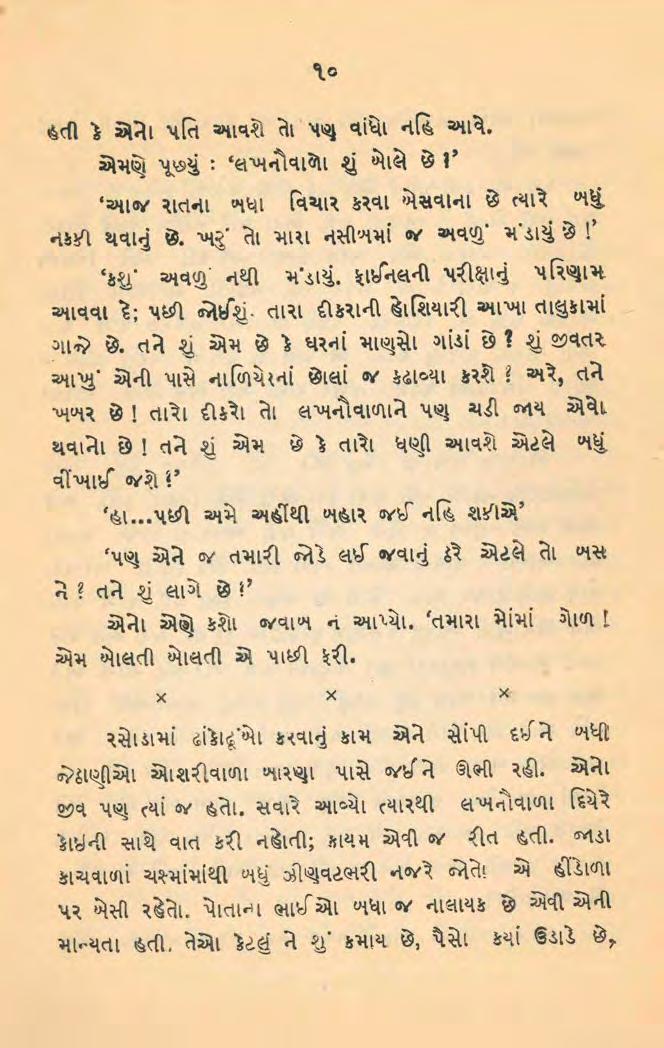 ૧૦
હતી કે એનો પતિ આવશે તો પણ વાંધો નહિ આવે.
એમણે પૂછ્યું : ‘લખનૌવાળો શું બોલે છે ?’
‘આજ રાતના બધા વિચાર કરવા બેસવાના છે ત્યારે બધું
નક્કી થવાનું છે. ખરું તો મારા નસીબમાં જ અવળું મંડાયું છે !’
‘કશું અવળું નથી મંડાયું. ફાઈનલની પરીક્ષાનું પરિણામ
આવવા દે; પછી જોઈશું. તારા દીકરાની હોશિયારી આખા તાલુકામાં
ગાજે છે. તને શું એમ છે કે ઘરનાં માણસો ગાંડાં છે ? શું જીવતર
આખું એની પાસે નાળિયેરનાં છોલાં જ કઢાવ્યા કરશે ? અરે, તને
ખબર છે ! તારો દીકરો તો લખનૌવાળાને પણ ચડી જાય એવો
થવાનો છે ! તને શું એમ છે કે તારો ધણી આવશે એટલે બધું
વીંખાઈ જશે ?’
‘હા...પછી અમે અહીંથી બહાર જઈ નહિ શકીએ’
‘પણ એને જ તમારી જોડે લઈ જવાનું ઠરે એટલે તો બસ
ને ? તને શું લાગે છે ?’
એનો એણે કશો જવાબ ન આપ્યો. ‘તમારા મોંમાં ગોળ !
એમ બોલતી બોલતી એ પાછી ફરી.
× × ×
રસોડામાં ઢાંકોઢૂંબો કરવાનું કામ એને સોંપી દઈને બધી
જેઠાણીઓ ઓશરીવાળા બારણા પાસે જઈને ઊભી રહી. એનો
જીવ પણ ત્યાં જ હતો. સવારે આવ્યો ત્યારથી લખનૌવાળા દિયેરે
કોઇની સાથે વાત કરી નહોતી; કાયમ એવી જ રીત હતી. જાડા
કાચવાળાં ચશ્માંમાંથી બધું ઝીણવટભરી નજરે જોતો એ હીંડોળા
પર બેસી રહેતો. પોતાના ભાઈઓ બધા જ નાલાયક છે એવી એની
માન્યતા હતી. તેઓ કેટલું ને શું કમાય છે, પૈસો કયાં ઉડાડે છે,